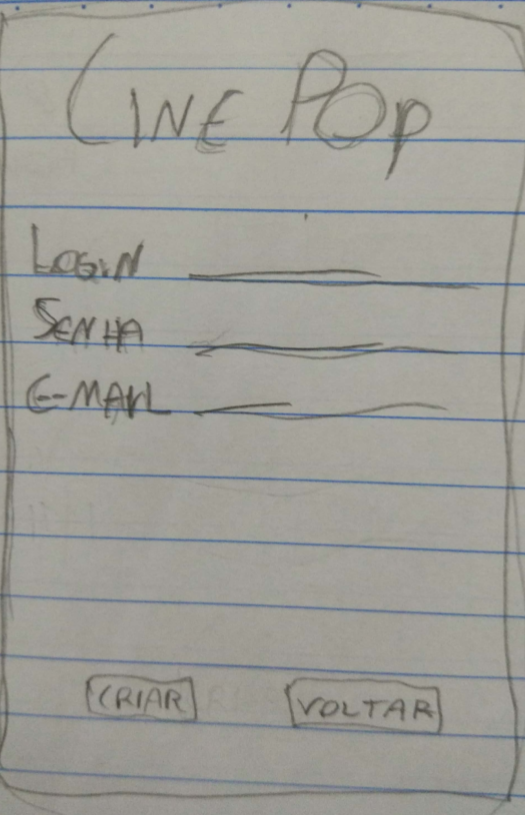 CINE POP
LOGIN
SENHA
E-MAIL
CRIAR VOLTAR